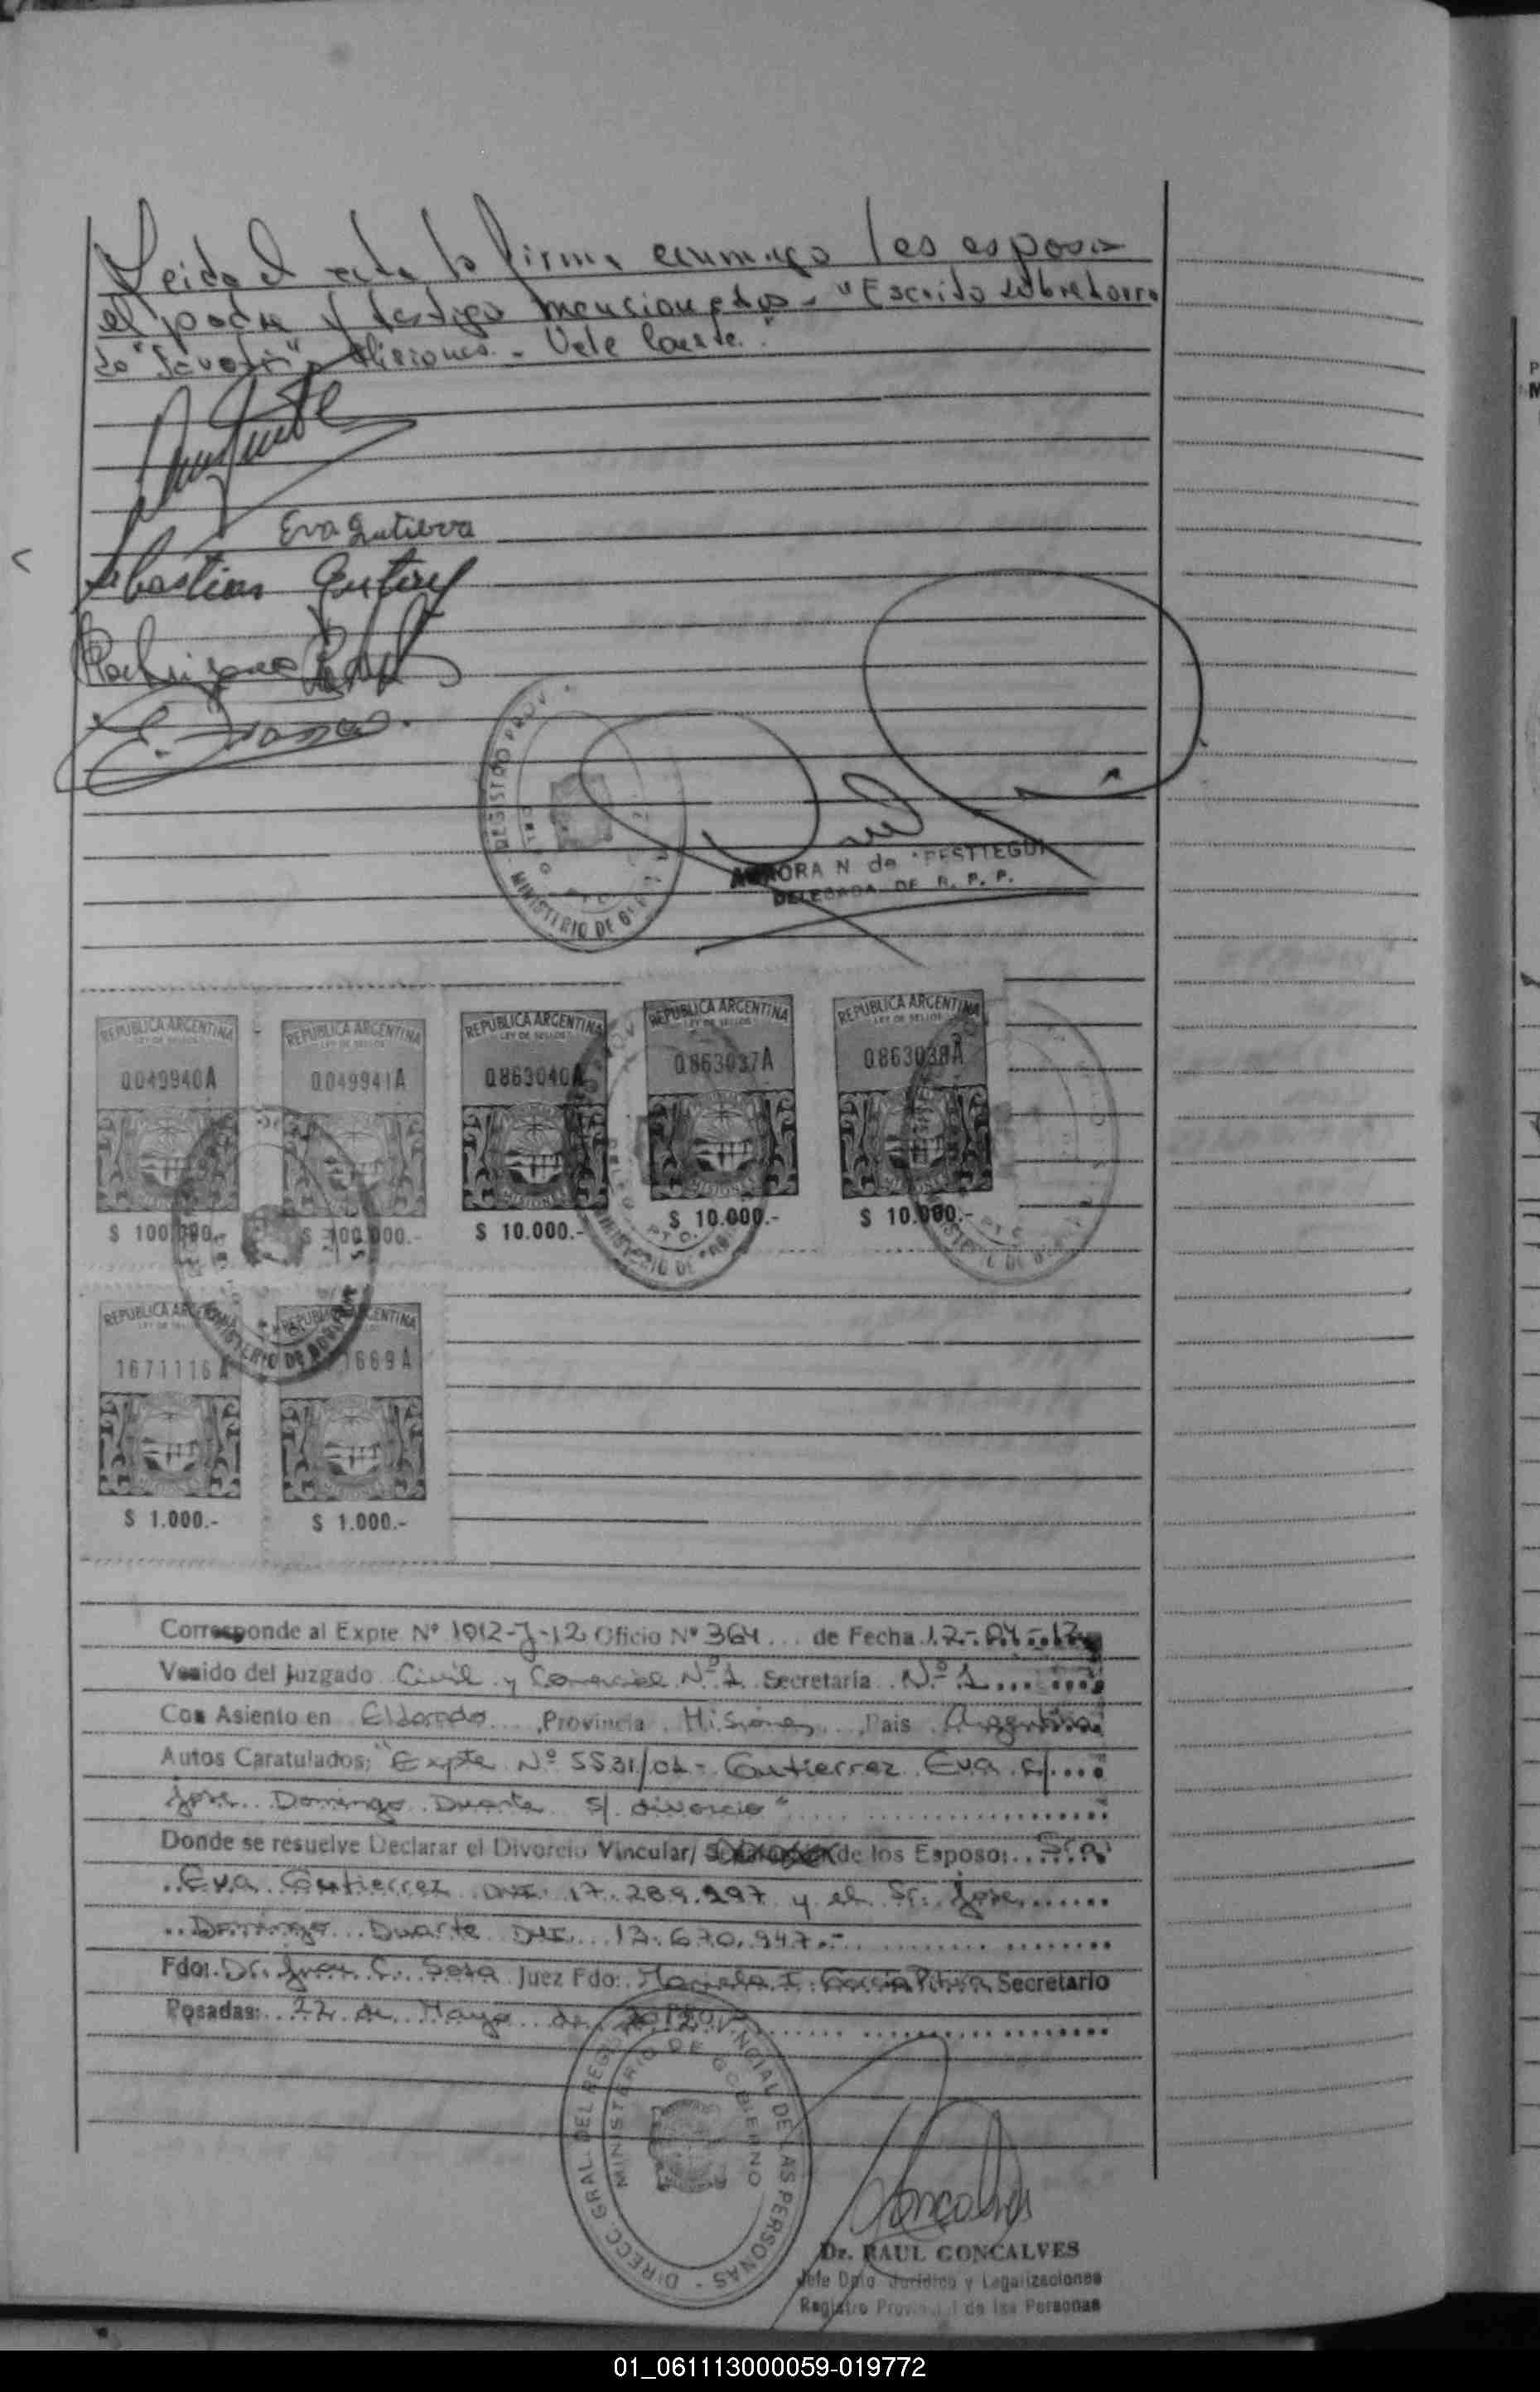 Leida el acta la firma conmigo los esposos
el padre y testigos mencionados - "Escrito sobreborra
do" - Misiones - Vale Conste."
Eva Gutierre
Sebastian
MINISTERIO DE
REGISTRO PROV.
AURORA N de
DELEGADA DE R. P. P.
REPUBLICA ARGENTINA
LEY DE SELLOS
0049940A
$ 100.000.-
REPUBLICA ARGENTINA
LEY DE SELLOS
0049941A
$ 100.000.-
REPUBLICA ARGENTINA
LEY DE SELLOS
0863040A
MISIONES
$ 10.000.-
REPUBLICA ARGENTINA
LEY DE SELLOS
0863037A
MISIONES
$ 10.000.-
REPUBLICA ARGENTINA
LEY DE SELLOS
0863038A
MISIONES
$ 10.000.-
REPUBLICA ARGENTINA
1671116A
$ 1.000.-
REPUBLICA ARGENTINA
1669A
$ 1.000.-
Corresponde al Expte Nº 1012-J-12 Oficio Nº 364 ... de Fecha 12-04-12
Venido del Juzgado Civil y Comercial Nº 1 Secretaría Nº 1
Con Asiento en Eldorado Provincia Misiones País Argentina
Autos Caratulados: "Expte Nº 5531/01- Gutierrez Eva c/
Jose Domingo Duarte s/ divorcio"
Donde se resuelve Declarar el Divorcio Vincular/ de los Esposo: Sra.
Eva Gutierrez DNI 17.289.297 y el Sr. Jose
Domingo Duarte DNI 13.670.947.-
Fdo: Dr. Juan C. Sosa Juez Fdo: Mariela I. García Secretario
Posadas: 22 de Mayo de 2012
DIRECC. GRAL. DEL REG. PROVINCIAL DE LAS PERSONAS
MINISTERIO DE GOBIERNO
Goncalves
Dr. RAUL GONCALVES
Jefe Dpto Jurídico y Legalizaciones
Registro Provincial de las Personas
01_061113000059-019772